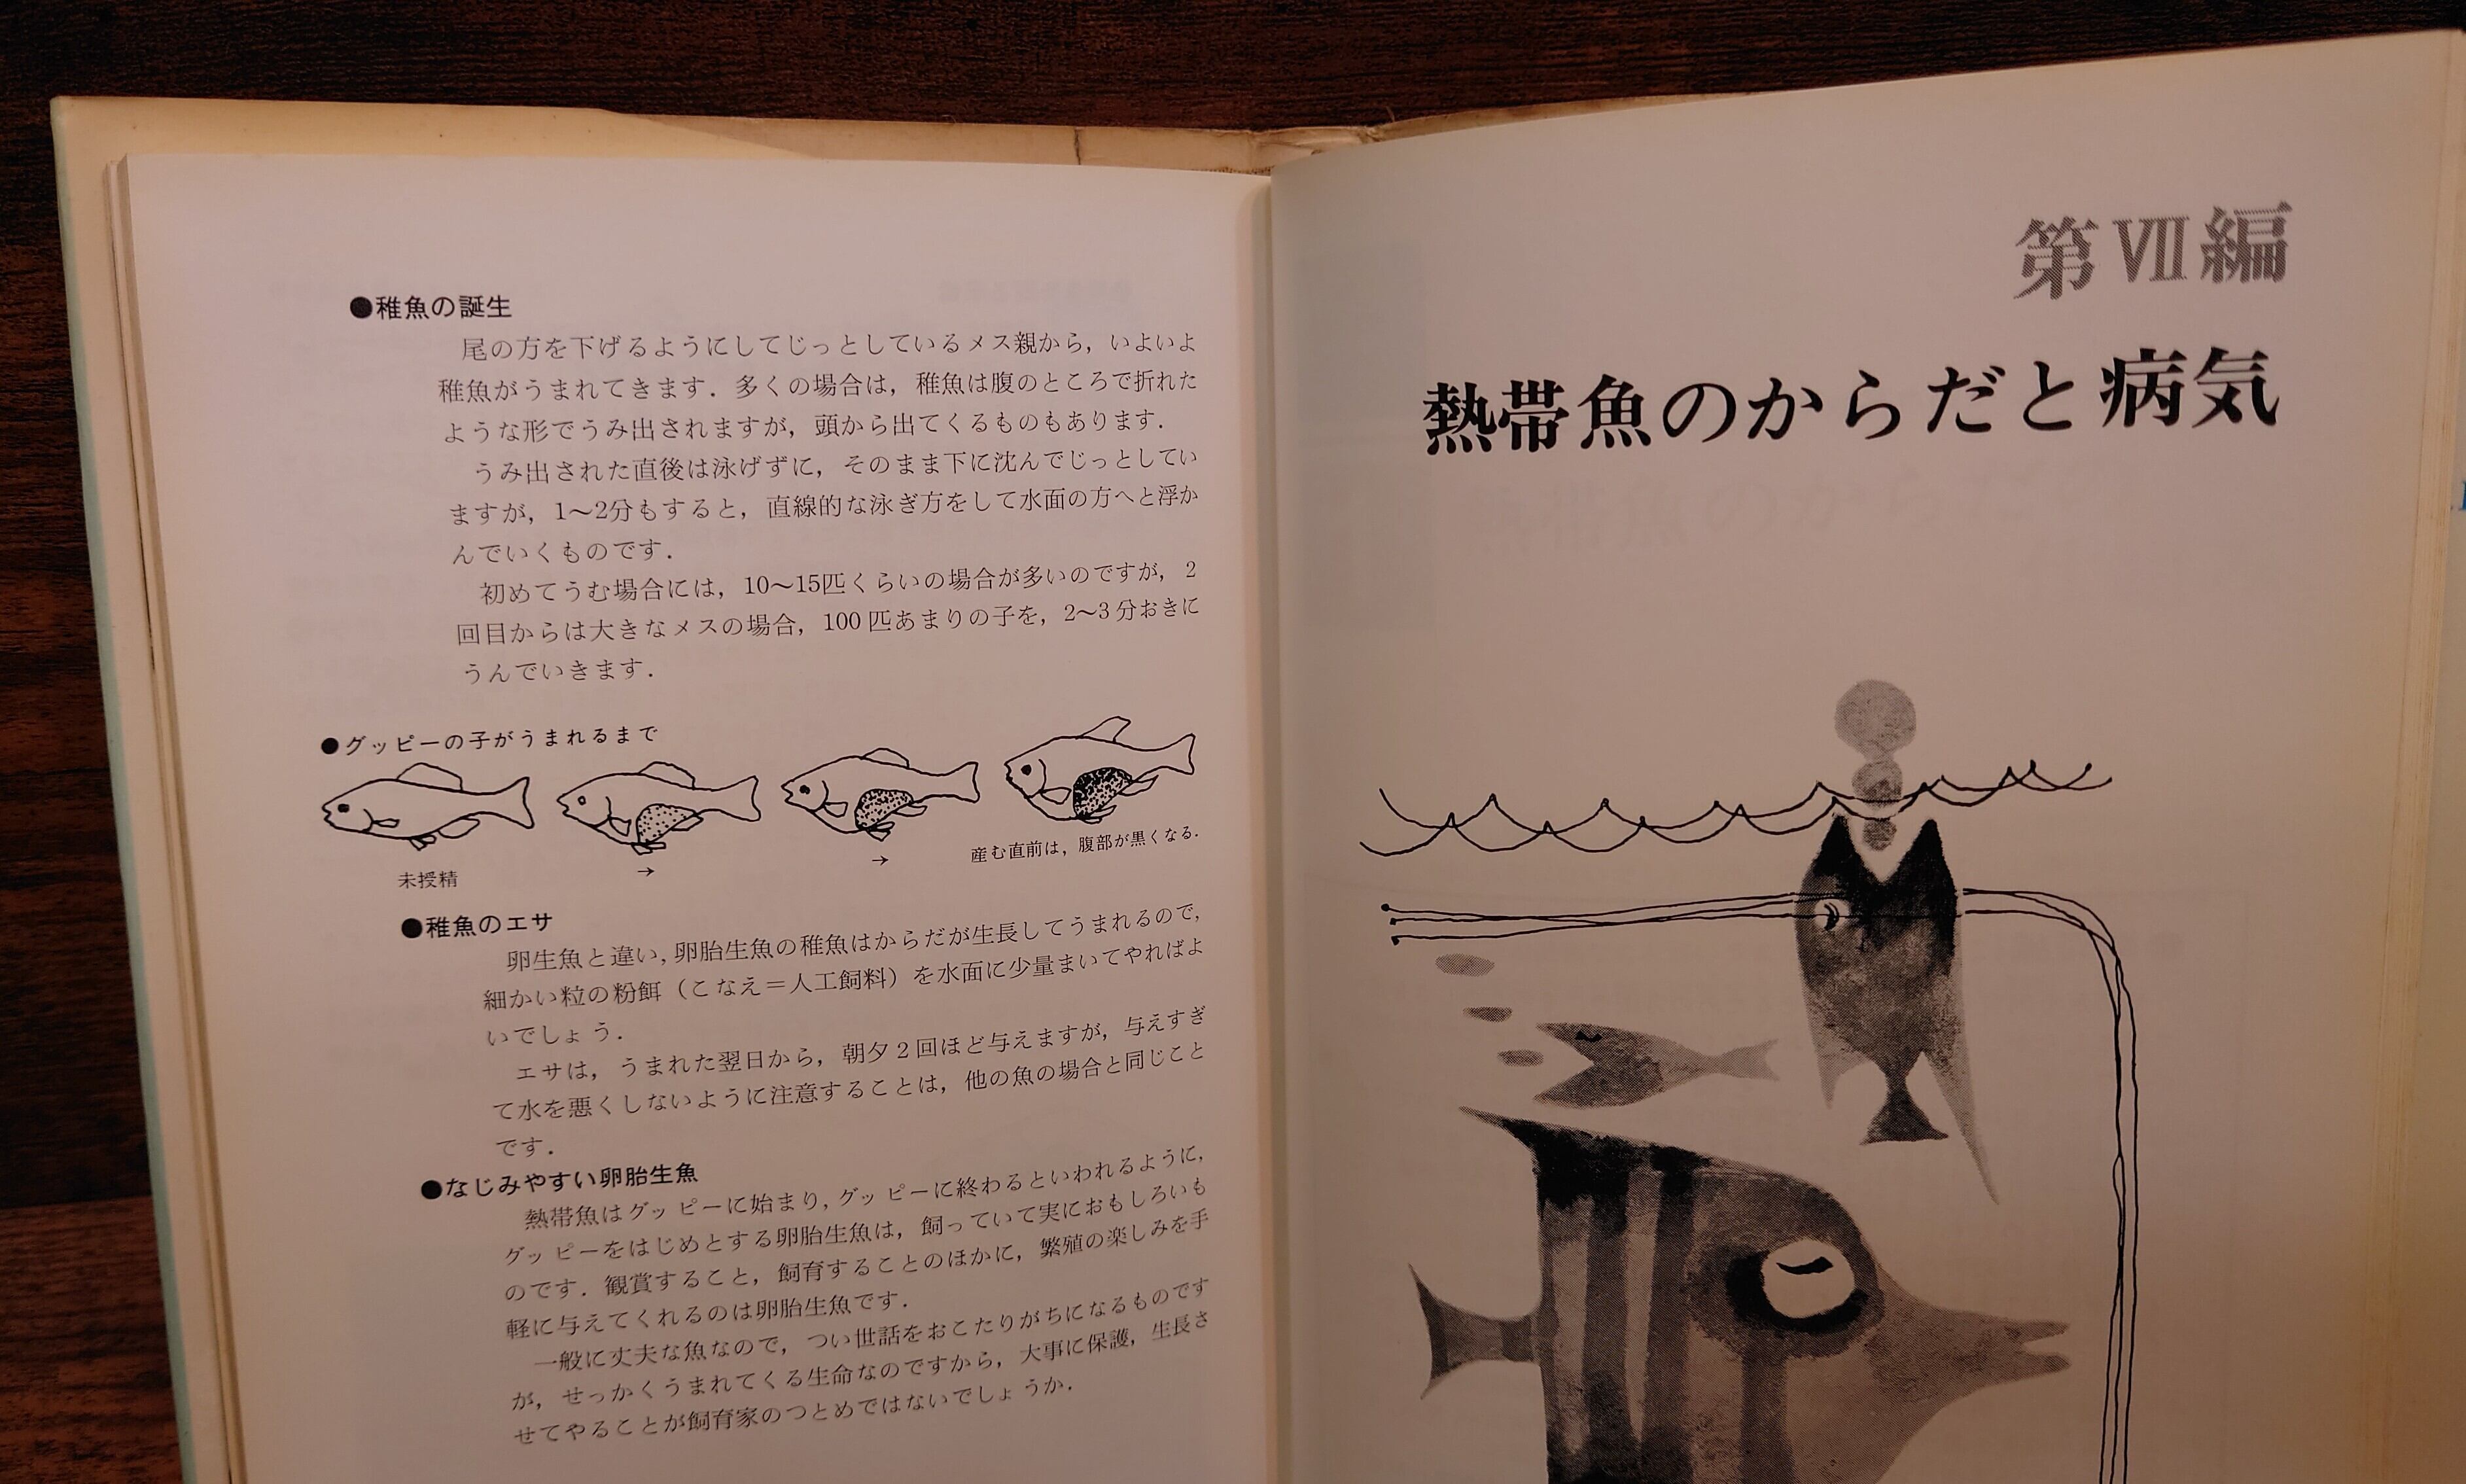 ●稚魚の誕生
尾の方を下げるようにしてじっとしているメス親から，いよいよ
稚魚がうまれてきます．多くの場合は，稚魚は腹のところで折れた
ような形でうみ出されますが，頭から出てくるものもあります．
うみ出された直後は泳げずに，そのまま下に沈んでじっとしてい
ますが，1〜2分もすると，直線的な泳ぎ方をして水面の方へと浮か
んでいくものです．
初めてうむ場合には，10〜15匹くらいの場合が多いのですが，2
回目からは大きなメスの場合，100匹あまりの子を，2〜3分おきに
うんでいきます．
●グッピーの子がうまれるまで
産む直前は，腹部が黒くなる．
→
→
未授精
●稚魚のエサ
卵生魚と違い，卵胎生魚の稚魚はからだが生長してうまれるので，
細かい粒の粉餌（こなえ＝人工飼料）を水面に少量まいてやればよ
いでしょう．
エサは，うまれた翌日から，朝夕2回ほど与えますが，与えすぎ
て水を悪くしないように注意することは，他の魚の場合と同じこと
です．
●なじみやすい卵胎生魚
熱帯魚はグッピーに始まり，グッピーに終わるといわれるように，
グッピーをはじめとする卵胎生魚は，飼っていて実におもしろいも
のです．観賞すること，飼育することのほかに，繁殖の楽しみを手
軽に与えてくれるのは卵胎生魚です．
一般に丈夫な魚なので，つい世話をおこたりがちになるものです
が，せっかくうまれてくる生命なのですから，大事に保護，生長さ
せてやることが飼育家のつとめではないでしょうか．
第VII編
熱帯魚のからだと病気